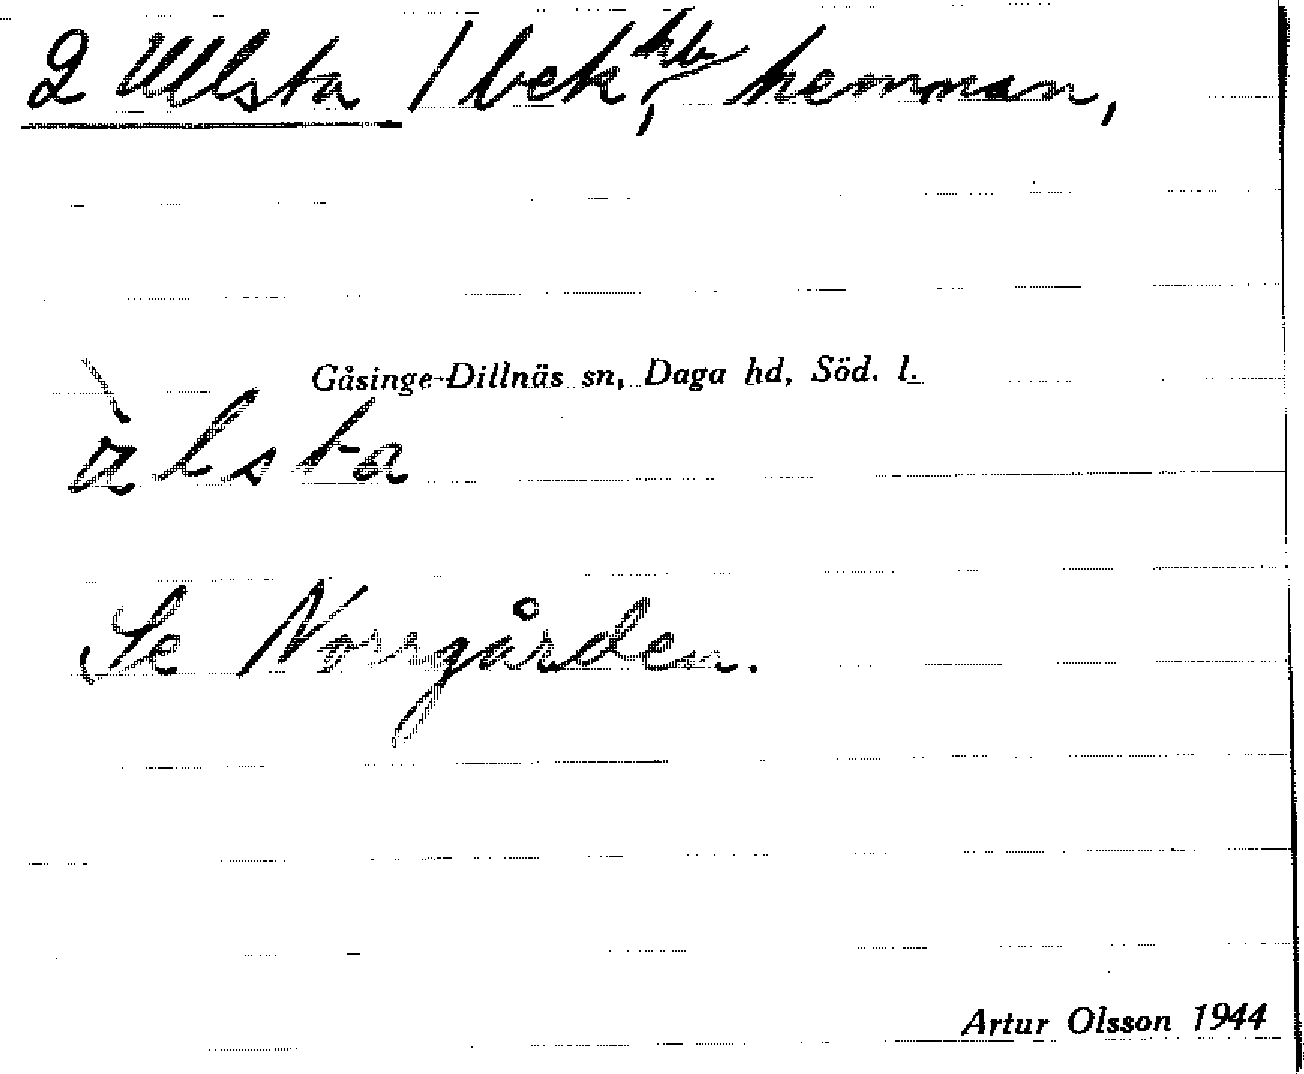 2 Ullsta / bek, hemman,
Gåsinge-Dillnäs sn, Daga hd, Söd. l.
àlsta
Se Norrgården.
Artur Olsson 1944